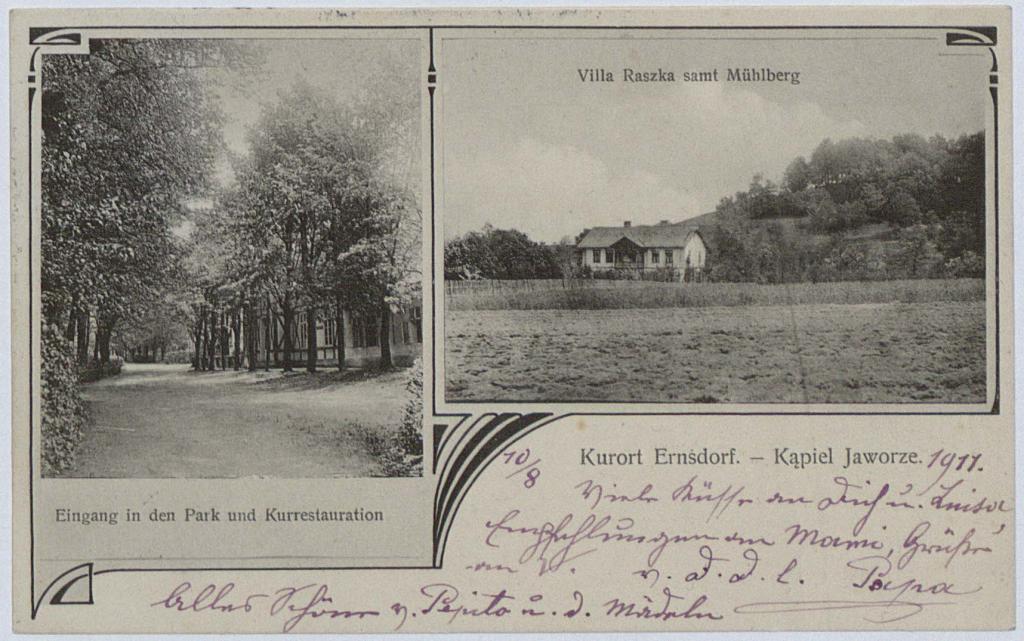 Villa Raszka samt Mühlberg
Eingang in den Park und Kurrestauration
Kurort Ernsdorf. – Kąpiel Jaworze.
10/8 1911.
Viele Küsse an Dich u. Luisa
Empfehlungen an Mami, Grüße
an V. v. d. d. l. Papa
Alles Schöne v. Pepito u. d. Mädeln